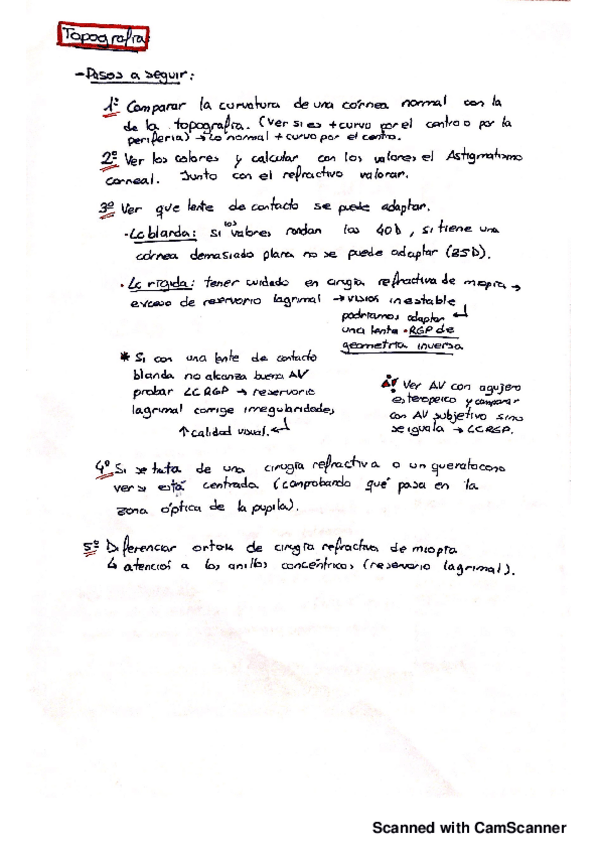 Topografía
- Pasos a seguir:
1º Comparar la curvatura de una córnea normal con la
de la topografía. (Ver si es + curva por el centro o por la
periferia) → Lo normal + curva por el centro.
2º Ver los colores y calcular con los valores el Astigmatismo
corneal. Junto con el refractivo valorar.
3º Ver que lente de contacto se puede adaptar.
· Lc blanda: si los valores rondan los 40D, si tiene una
córnea demasiado plana no se puede adaptar (35D).
· Lc rígida: tener cuidado en cirugía refractiva de miopía →
exceso de reservorio lagrimal → visión inestable
podríamos adaptar
una lente · RGP de
geometría inversa
* Si con una lente de contacto
blanda no alcanza buena AV
probar LC RGP → reservorio
lagrimal corrige irregularidades,
↑ calidad visual.
Ver AV con agujero
estenopeico y comparar
con AV subjetivo si no
se iguala → LCRGP.
4º Si se trata de una cirugía refractiva o un queratocono
ver si está centrada (comprobando qué pasa en la
zona óptica de la pupila).
5º Diferenciar ortok de cirugía refractiva de miopía
↳ atención a los anillos concéntricos (reservorio lagrimal).
Scanned with CamScanner